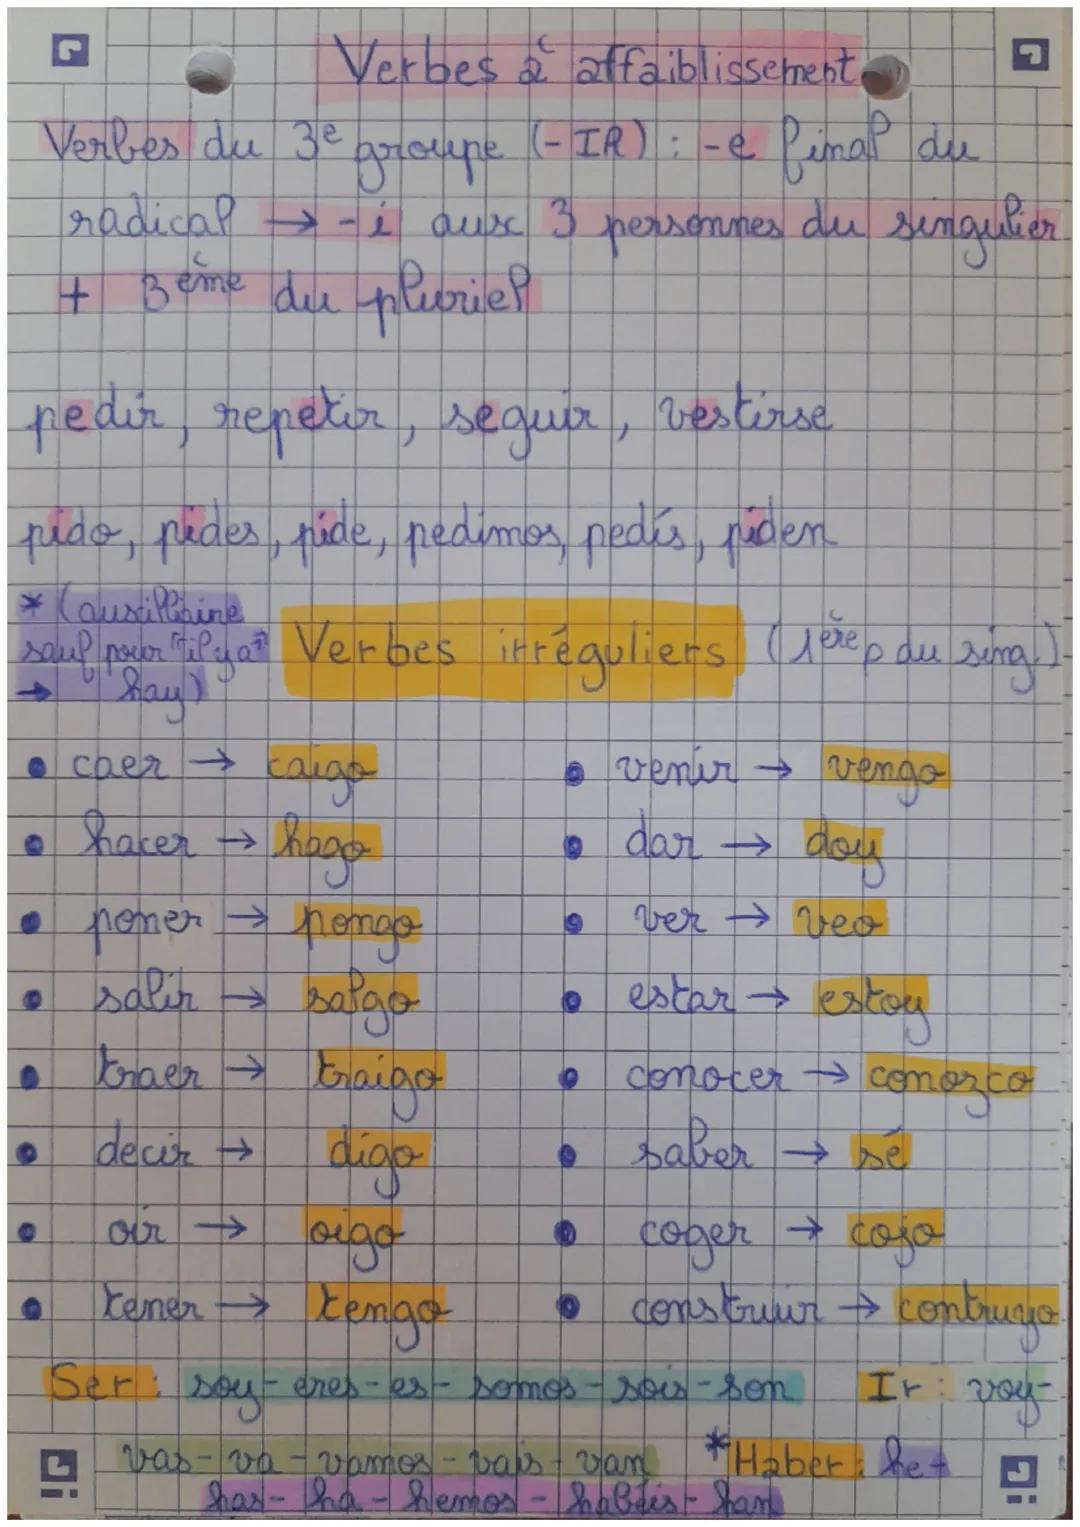 Verbes à affaiblissement
Verbes du 3e groupe (-IR) : -e final du
radical → -i aux 3 personnes du singulier
+ 3ème du pluriel
pedir, repetir, seguir, vestirse
pido, pides, pide, pedimos, pedís, piden
* (auxilliaire
sauf pour "il y a"
→ hay)
Verbes irréguliers (1ère p du sing.)
• caer → caigo
• venir → vengo
• hacer → hago
• dar → doy
• poner → pongo
• ver → veo
• salir → salgo
• estar → estoy
• traer → traigo
• conocer → conozco
• decir → digo
• saber → sé
• oir → oigo
• coger → cojo
• tener → tengo
• construir → contruyo
Ser : soy - eres - es - somos - sois - son
Ir : voy -
vas - va - vamos - vais - van
*Haber : he -
has - ha - hemos - habéis - han